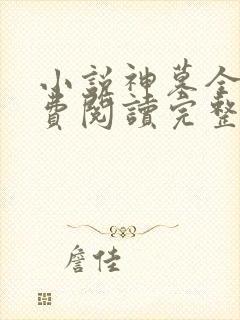 小説神墓全
費閱讀完整
詹佳